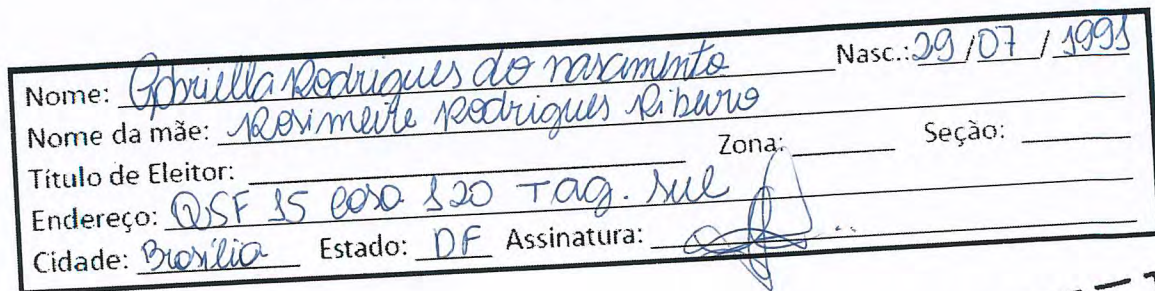 Nome: Gabriella Rodrigues do nascimento Nasc.: 29/07/1991
Nome da mãe: Rosimeire Rodrigues Ribeiro
Título de Eleitor: Zona: Seção:
Endereço: QSF 15 casa 120 Tag. Sul
Cidade: Brasília Estado: DF Assinatura: